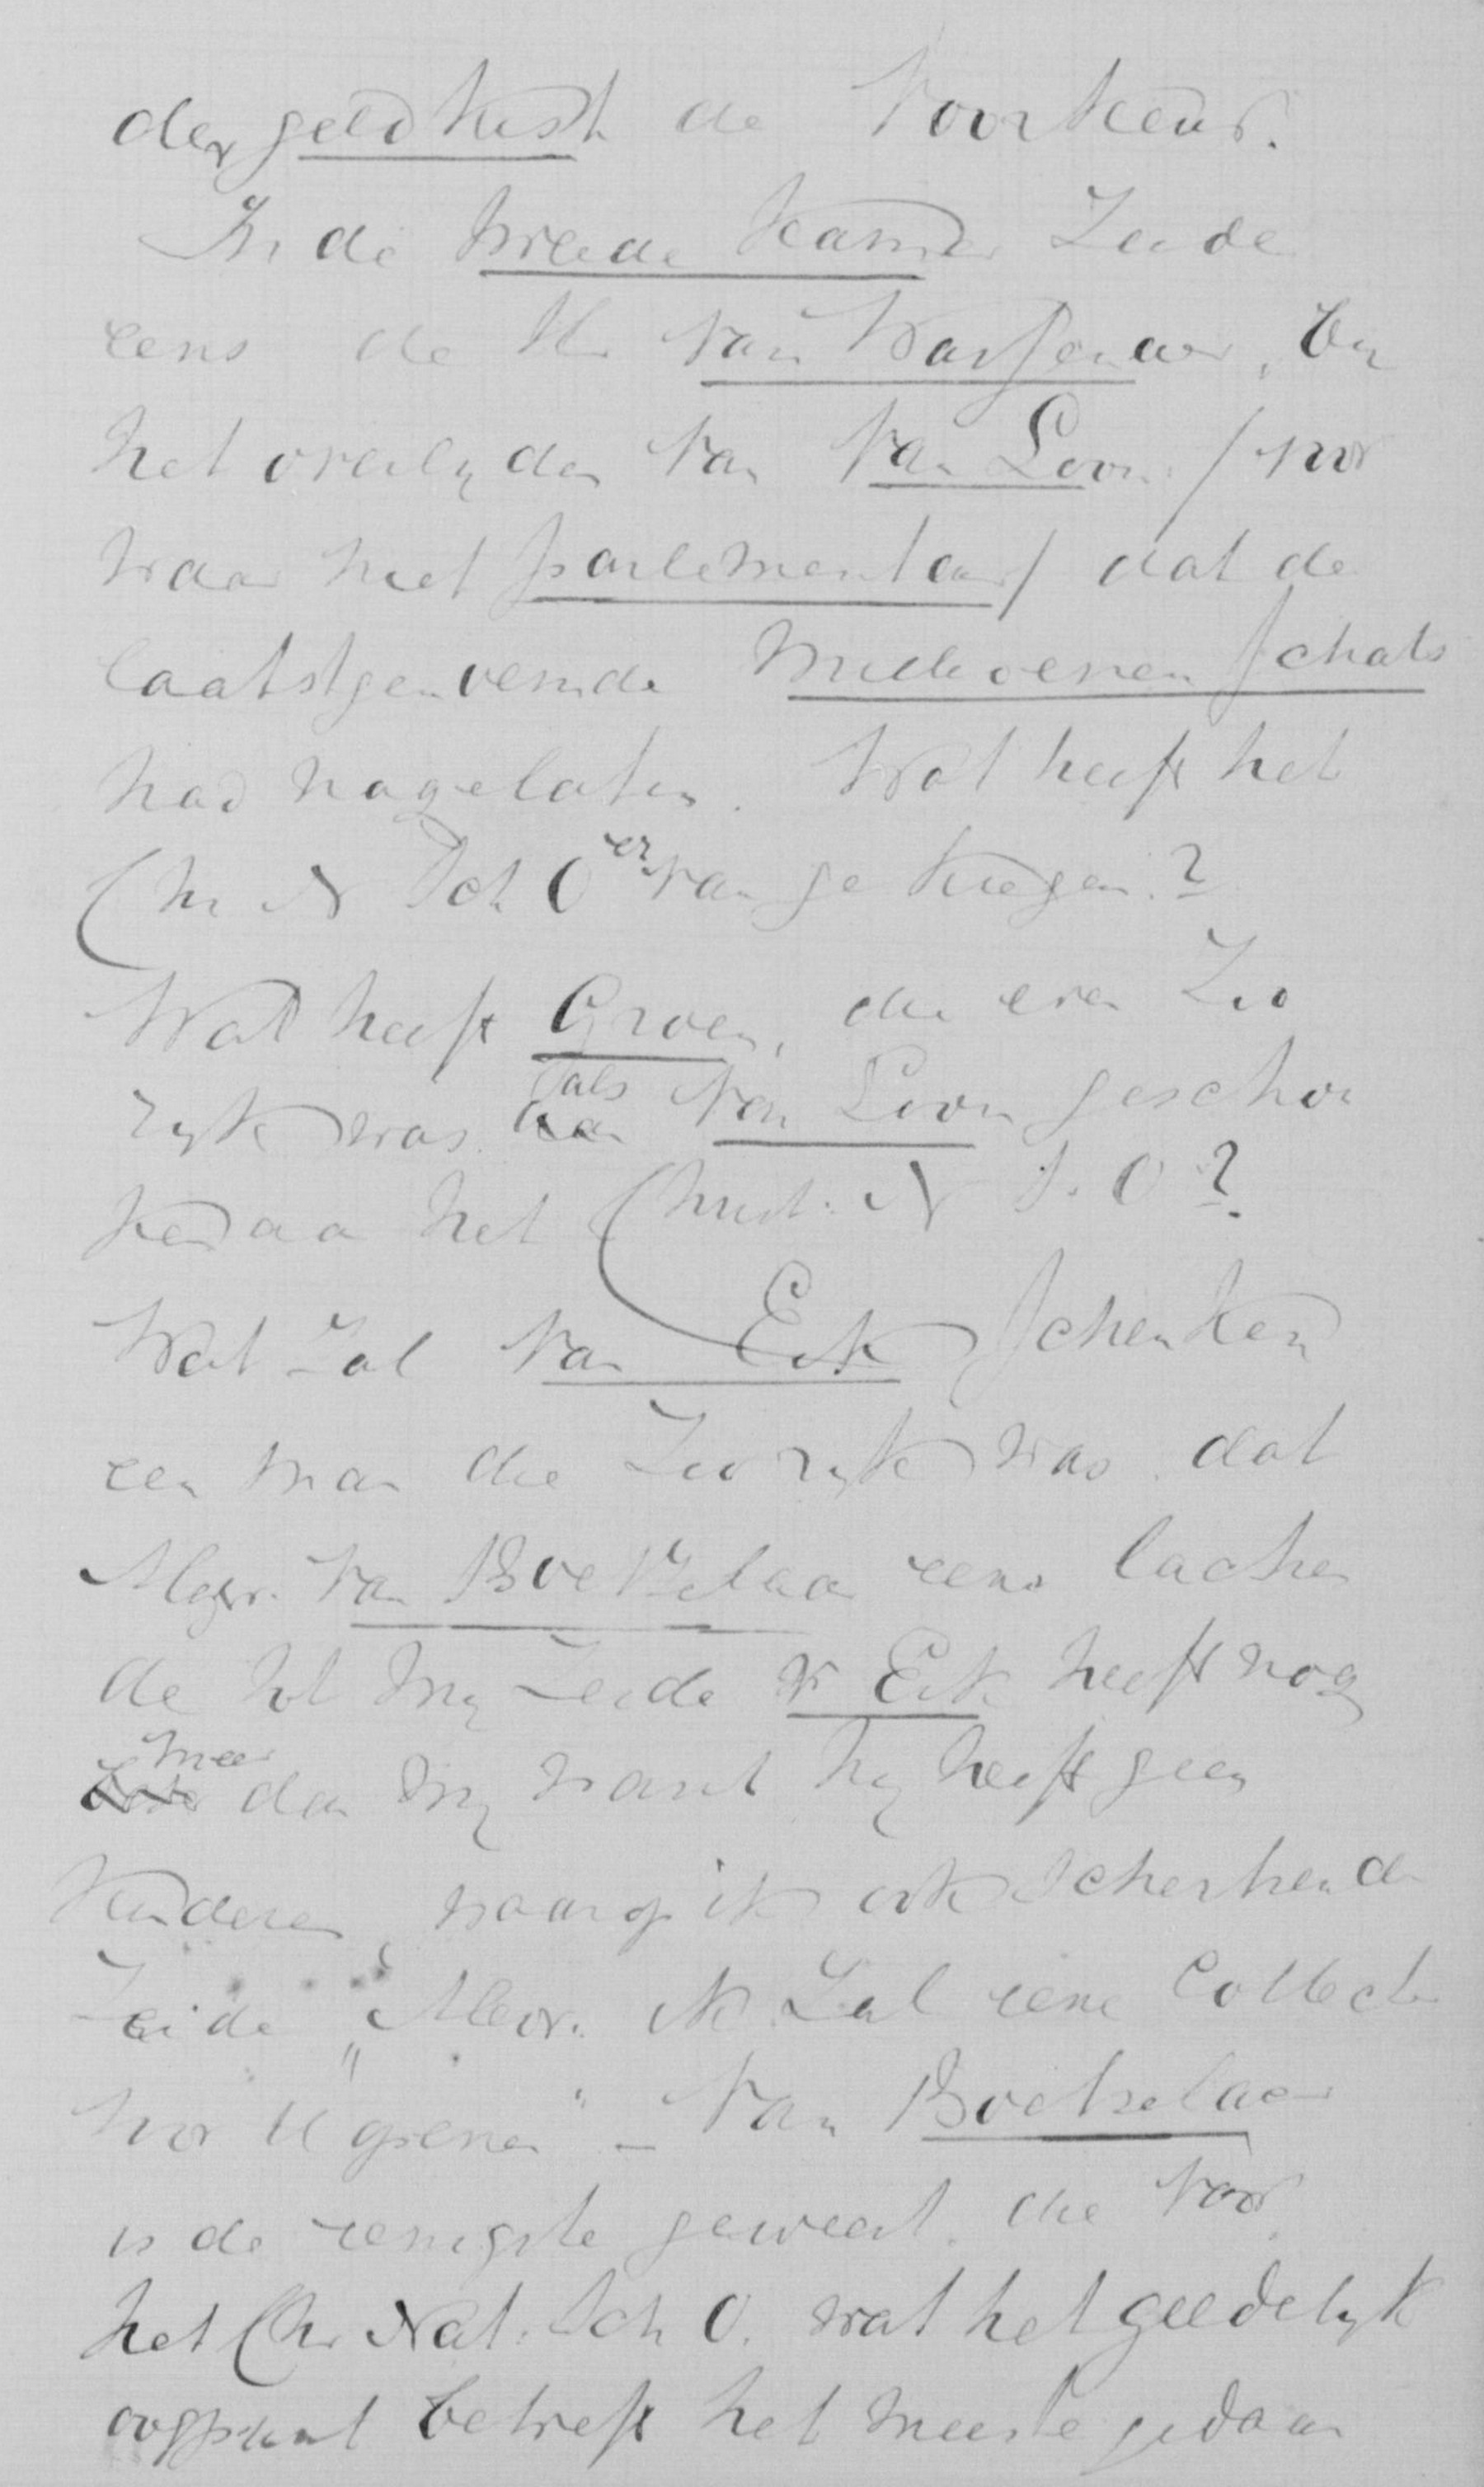 der geldkist de voorkeur.
In de tweede kamer zeide
eens de Hr van Wassenaer, bij
het overlijden van van Loon / voor
waar niet parlementair / dat de
laatstgenoemde millioenen schats
had nagelaten. Wat heeft het
Chr N Sch O er van gekregen?
Wat heeft Groen, die even zoo
rijk was als van Loon geschon
ken aan het Christ. N S. O?
Wat zal van Eik schenken
een man die zoo rijk was dat
Mevr. van Boetzelaer eens lachen
de tot mij zeide v Eik heeft nog
meer dan wij want hij heeft geen
kinderen, waarop ik ook schertsende
zeide „Mevr. ik zal eene collecte
voor U openen" - Van Boetzelaer
is de eenigste geweest die voor
het Chr Nat. Sch O. wat het geldelijk
oogpunt betreft het meeste gedaan